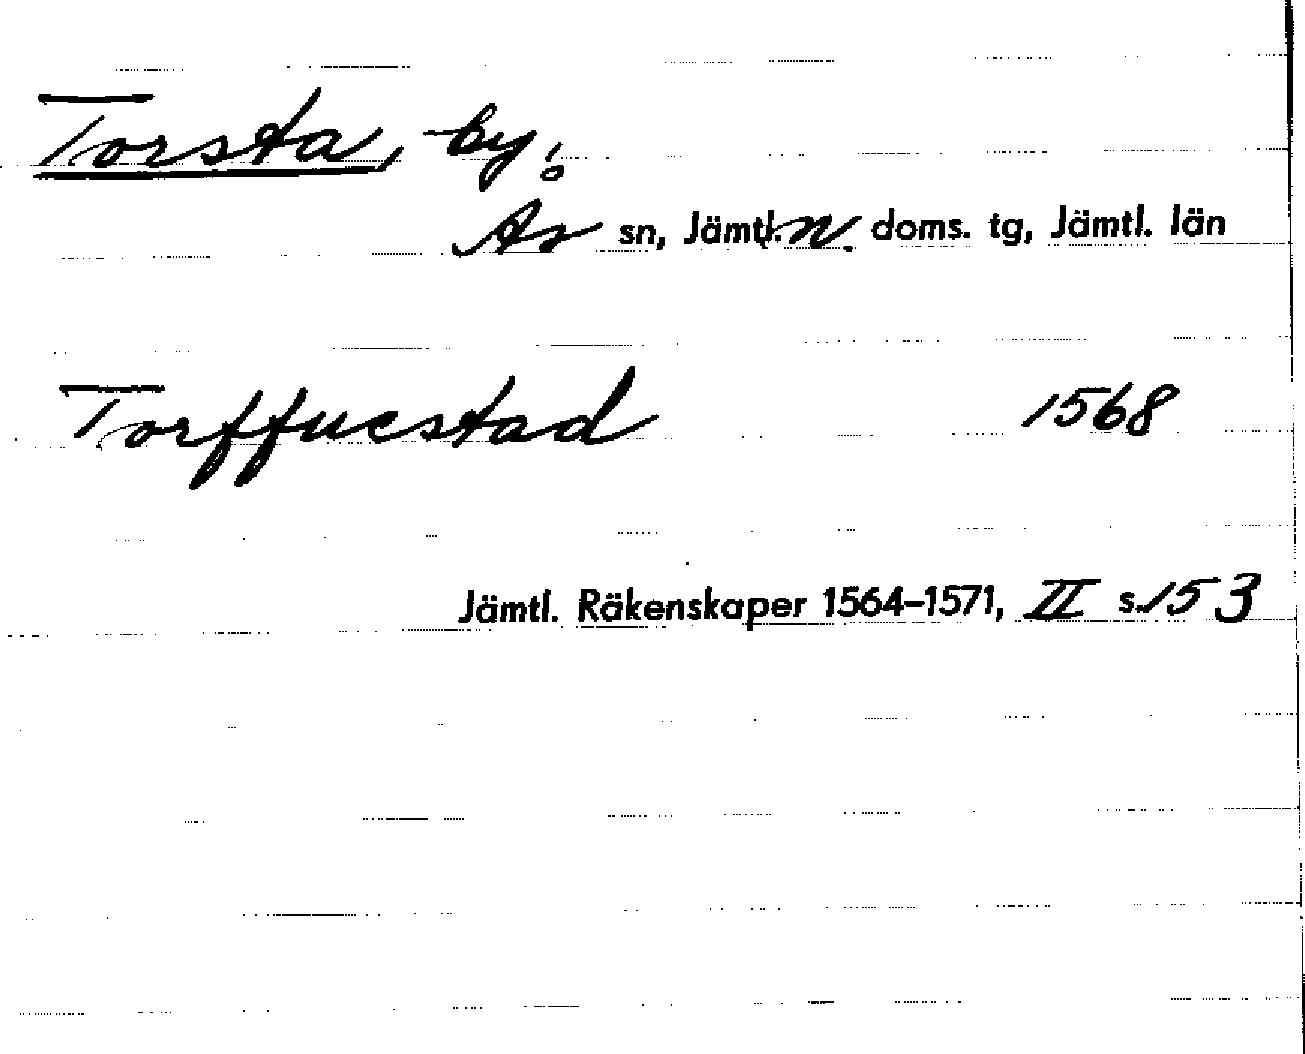 Torsta, by.
Ås sn, Jämtl. N. doms. tg, Jämtl. län
Torffuestad 1568
Jämtl. Räkenskaper 1564–1571, II s. 153